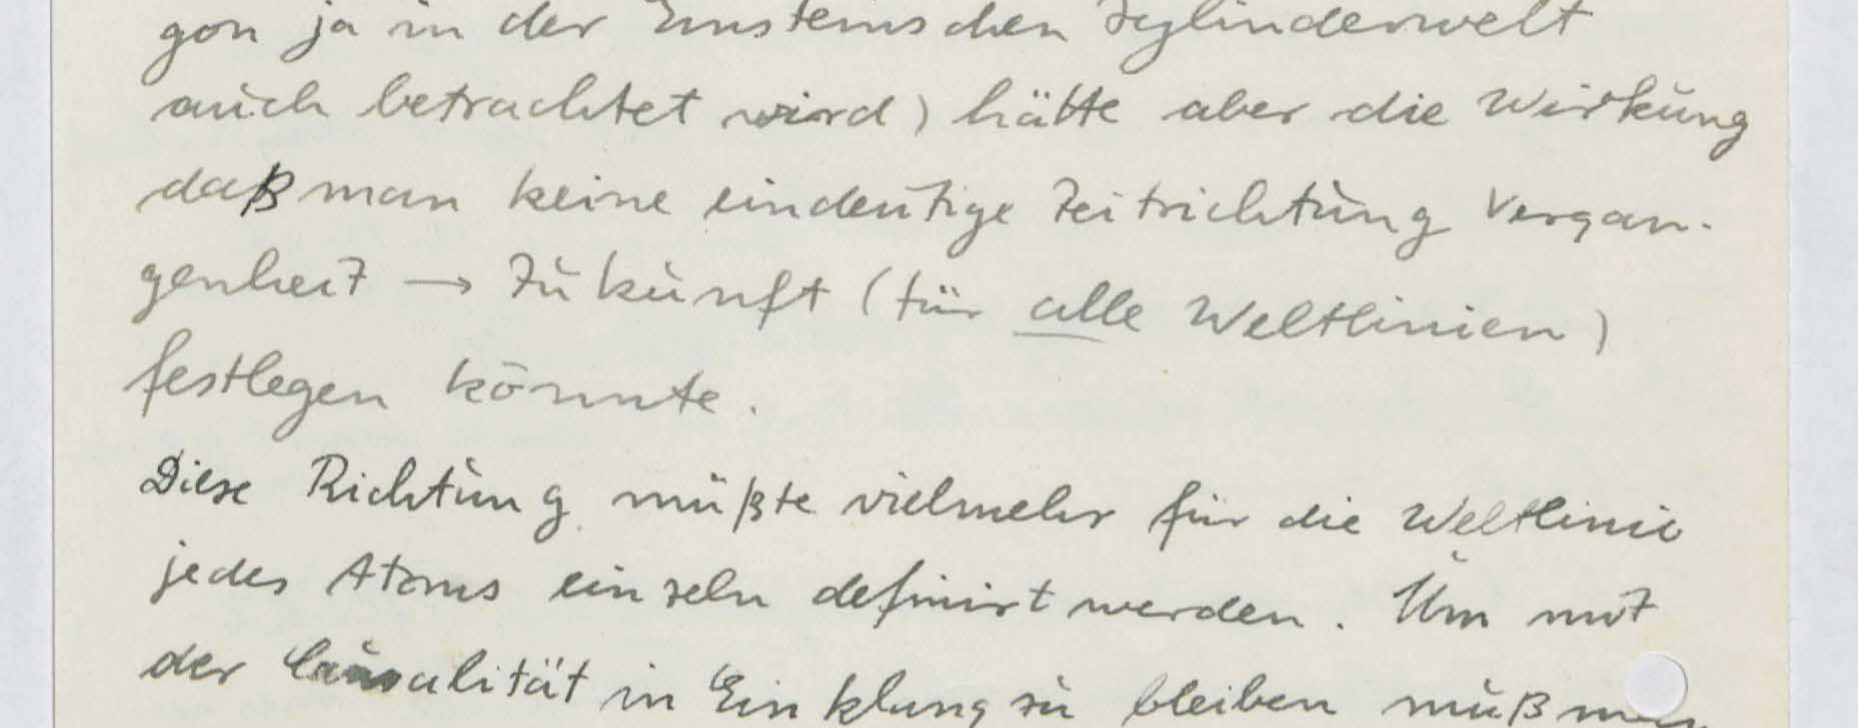 gon ja in der Einsteinschen Zylinderwelt
auch betrachtet wird) hätte aber die Wirkung
daß man keine eindeutige Zeitrichtung Vergan-
genheit → Zukunft (für alle Weltlinien)
festlegen könnte.
Diese Richtung müßte vielmehr für die Weltlinie
jedes Atoms einzeln definirt werden. Um mit
der Causalität in Einklang zu bleiben muß man